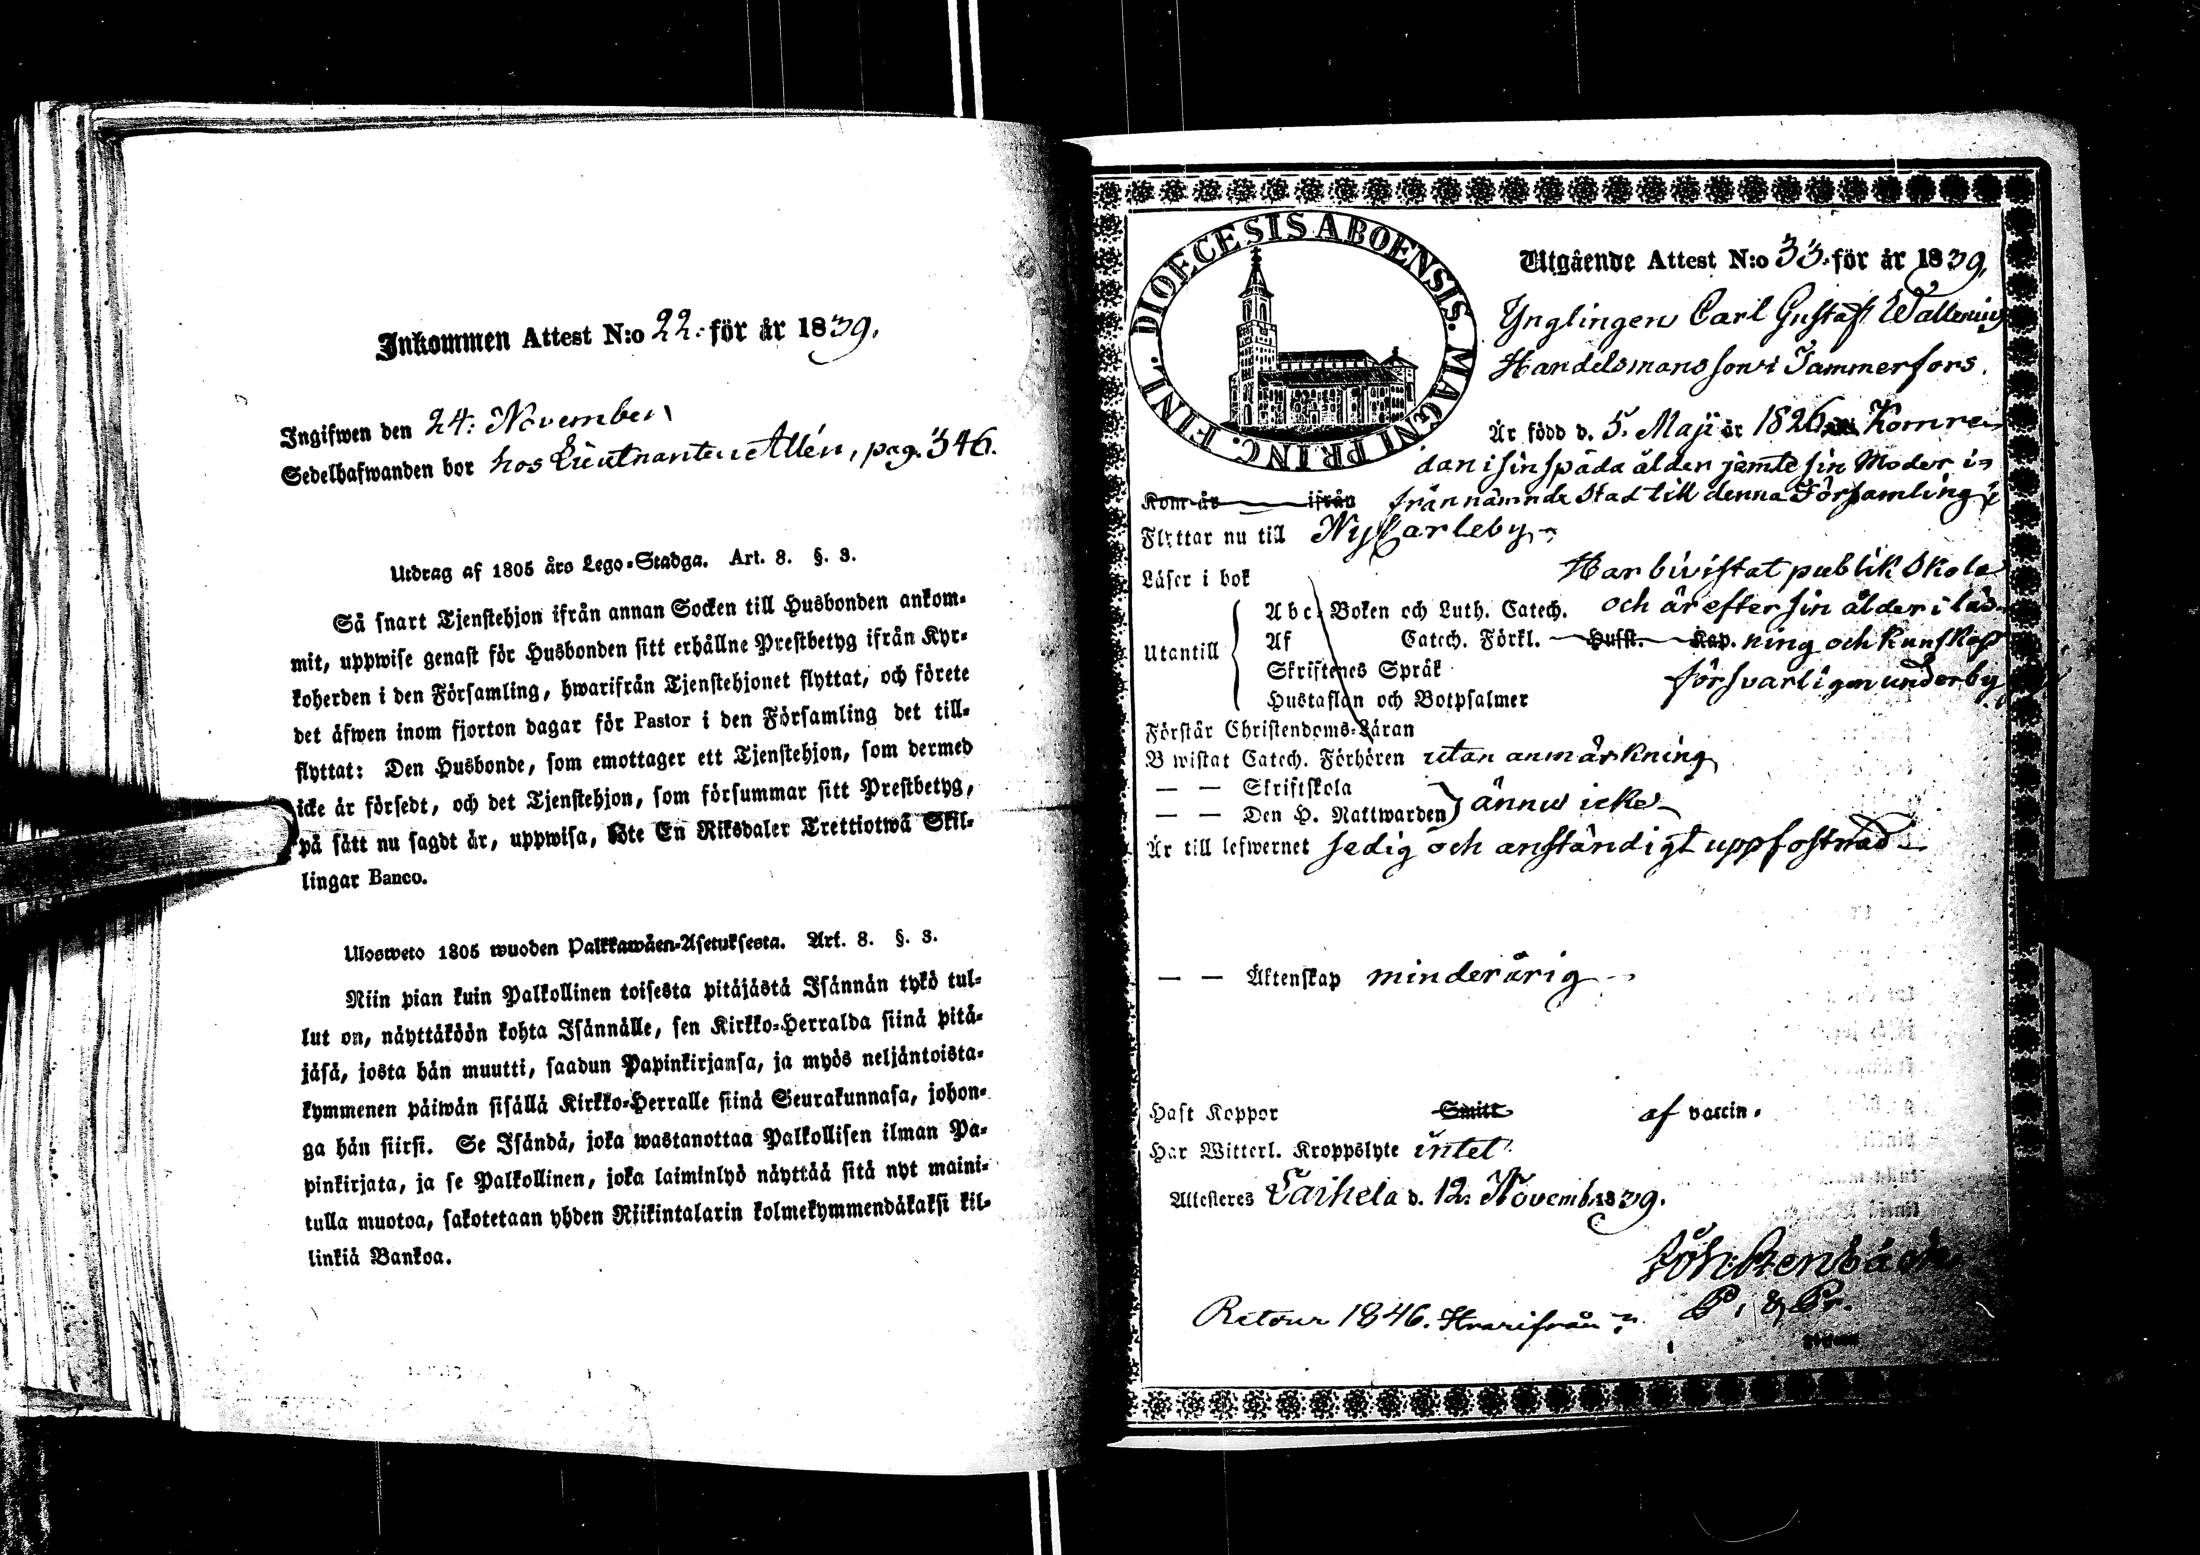 Inkommen Attest N:o 22: för år 1839.
Ingifwen den 24: November
Sedelhafwanden bor hos Lieutnanten Allén, pag. 346.
Utdrag af 1805 års Lego-Stadga. Art. 8. §. 3.
Så snart Tjenstehjon ifrån annan Socken till Husbonden ankom-
mit, uppwise genast för Husbonden sitt erhållne Prestbetyg ifrån Kyr-
koherden i den Församling, hwarifrån Tjenstehjonet flyttat, och förete
det äfwen inom fjorton dagar för Pastor i den Församling det till-
flyttat: Den Husbonde, som emottager ett Tjenstehjon, som dermed
icke är försedt, och det Tjenstehjon, som försummar sitt Prestbetyg,
på sätt nu sagdt är, uppwisa, böte En Riksdaler Trettiotwå Skil-
lingar Banco.
Ulosweto 1805 wuoden Palkkawäen-Asetuksesta. Art. 8. §. 3.
Niin pian kuin Palkollinen toisesta pitäjästä Isännän tykö tul-
lut on, näyttäköön kohta Isännälle, sen Kirkko-Herralda siinä pitä-
jäsä, josta hän muutti, saadun Papinkirjansa, ja myös neljäntoista-
kymmenen päiwän sisällä Kirkko-Herralle siinä Seurakunnasa, johon-
ga hän siirsi. Se Isändä, joka wastanottaa Palkollisen ilman Pa-
pinkirjata, ja se Palkollinen, joka laiminlyö näyttää sitä nyt maini-
tulla muotoa, sakotetaan yhden Riikintalarin kolmekymmendäkaksi kil-
linkiä Bankoa.
DIOECESIS ABOENSIS. MAGNI PRINC. FINL.
Utgående Attest N:o 33. för år 1839.
Ynglingen Carl Gustaf Wallenius
Handelsmans son i Tammerfors.
Är född d. 5. Maji år 1826 Kom re-
dan i sin späda ålder jemte sin Moder i-
Kom år ifrån från nämnde Stad till denna Församling
Flyttar nu till NyCarleby
Läser i bok Har bivistat publik Skola
Utantill Abc-Boken och Luth. Catech. och är efter sin ålder i läs-
Af Catech. Förkl. Husst. Kap. ning och kunskap
Skriftenes Språk försvarligen underby
Hustaflan och Botpsalmer
Förstår Christendoms-Läran
Bwistat Catech. Förhören utan anmärkning
— — Skriftskola
— — Den H. Nattwarden ännu icke
Är till lefwernet sedig och anständigt uppfostrad
— — Äktenskap minderårig
Haft Koppor Smitt af vaccin.
Har Witterl. Kroppslyte intet
Attesteres Laihela d. 12. Novemb. 1839.
P. & Pr.
Retour 1846. Hvarifrån?